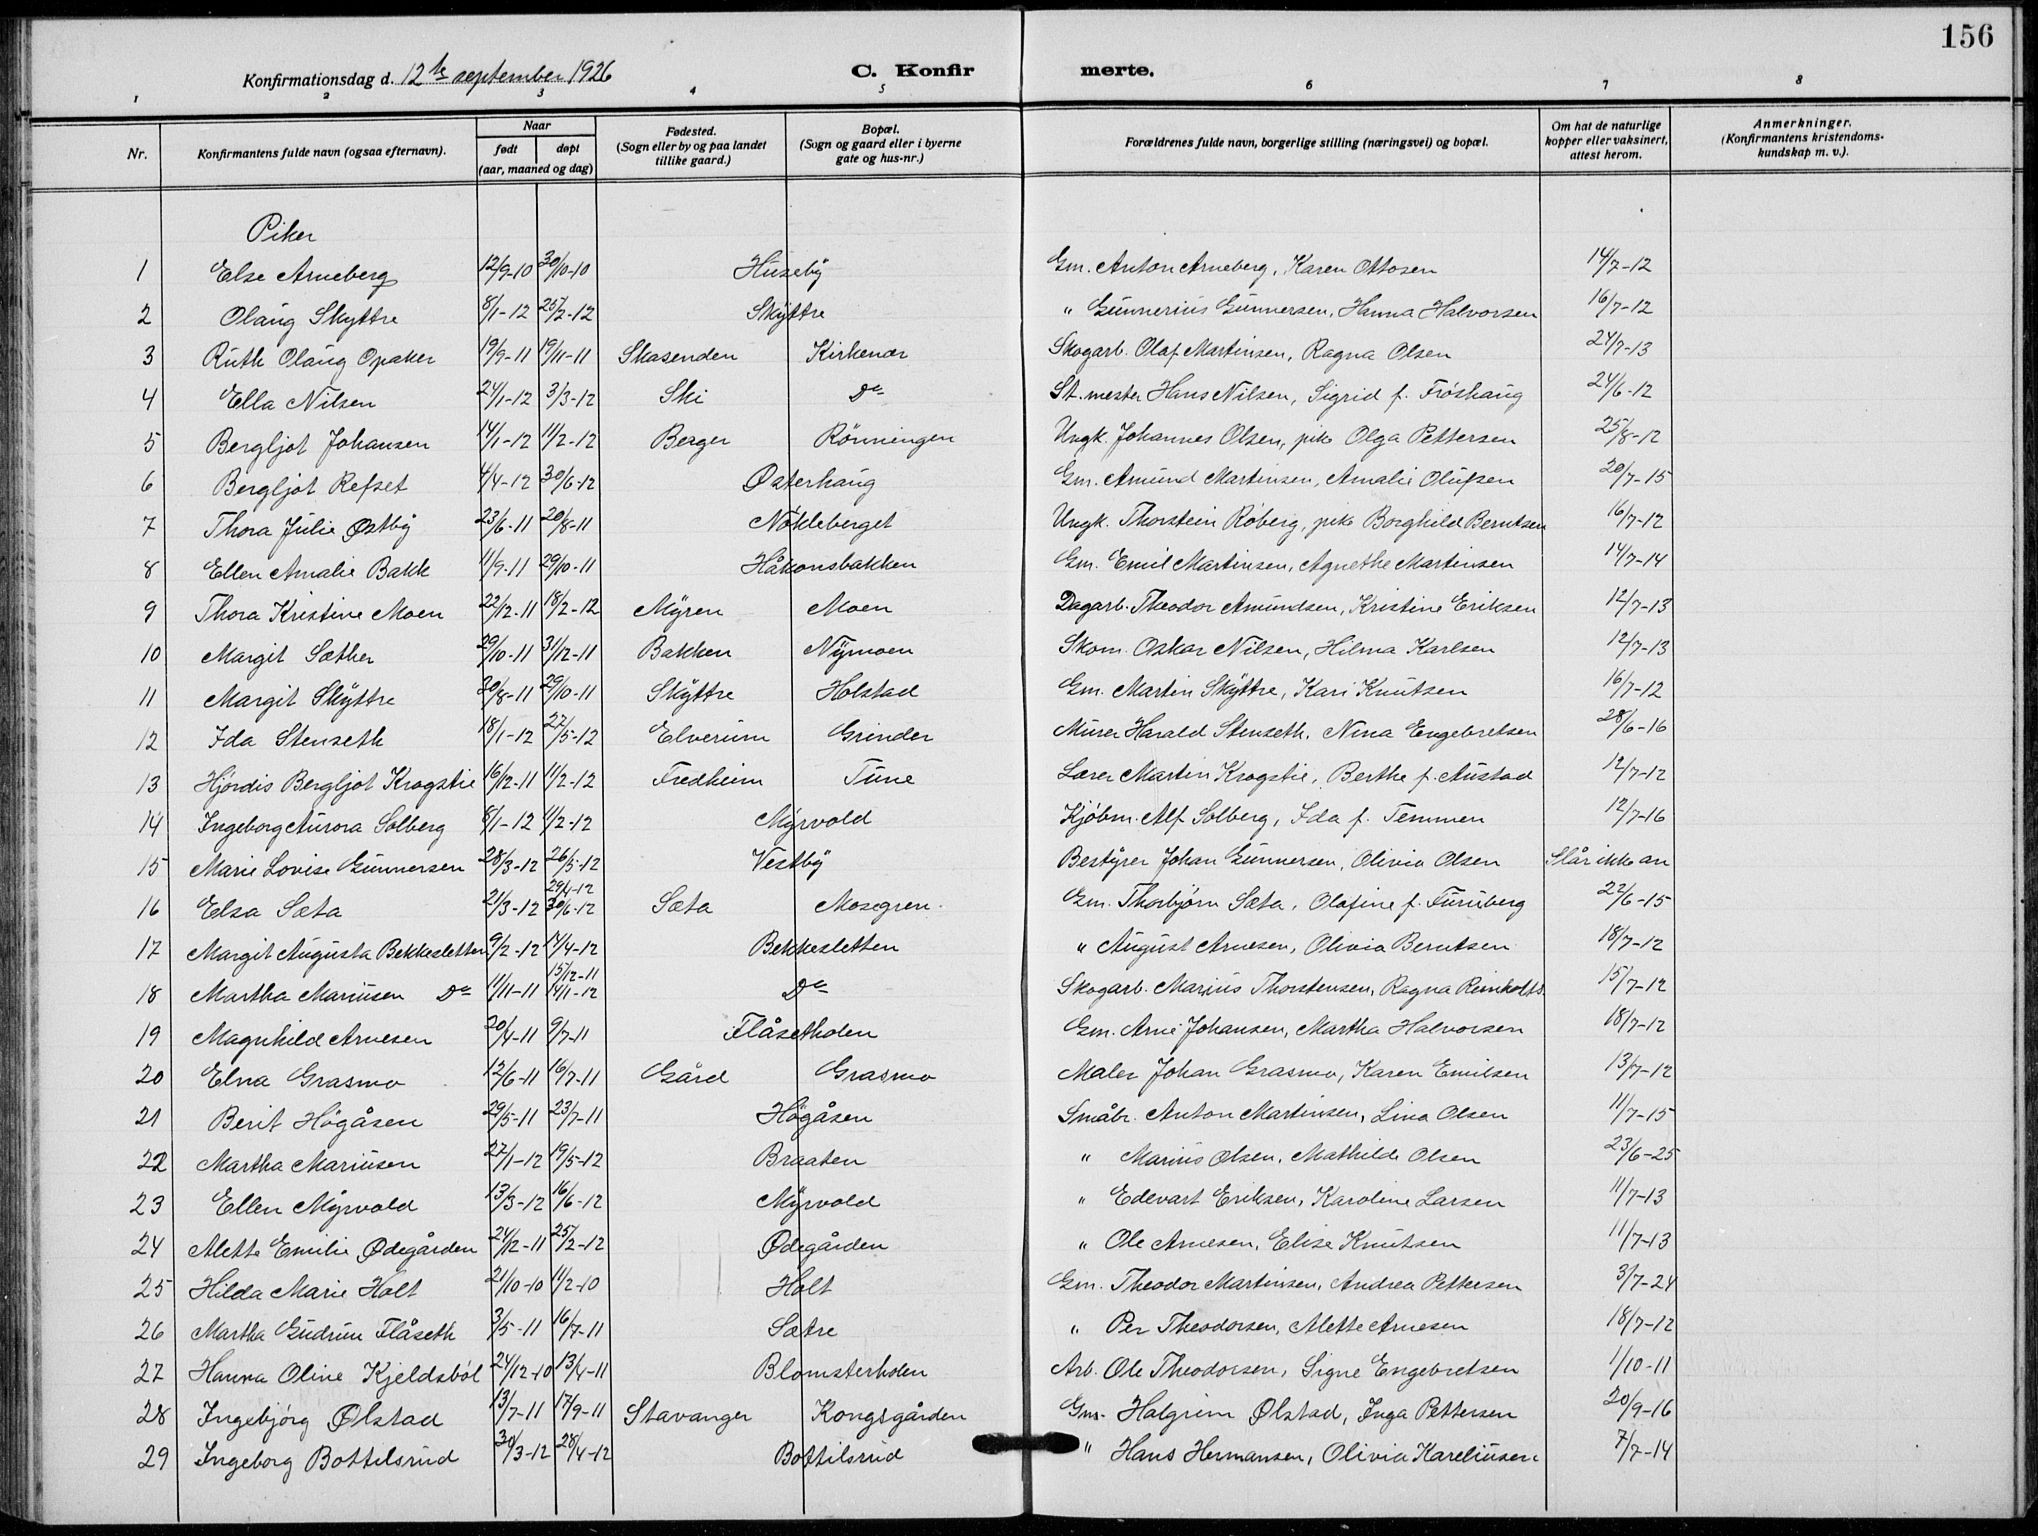 156
Konfirmationsdag d. 12te september 1926 C. Konfir merte.
1 2 3 4 5 6 7 8
Nr. Konfirmantens fulde navn (ogsaa efternavn). Naar født døpt (aar, maaned og dag) Fødested. (Sogn eller by og paa landet tillike gaard.) Bopæl. (Sogn og gaard eller i byerne gate og hus-nr.) Forældrenes fulde navn, borgerlige stilling (næringsvei) og bopæl. Om hat de naturlige kopper eller vaksinert, attest herom. Anmerkninger. (Konfirmantens kristendoms-kundskap m. v.).
Piker
1 Else Arneberg 12/9-10 30/10-10 Huseby Gm. Anton Arneberg, Karen Ottosen 14/7-12
2 Olaug Skyttre 8/1-12 25/2-12 Skyttre " Gunnerius Gunnersen, Hanna Halvorsen 16/7-12
3 Ruth Olaug Opaker 19/9-11 19/11-11 Skasenden Kirkenær Skogarb. Olaf Martinsen, Ragna Olsen 24/7-13
4 Ella Nilsen 24/1-12 3/3-12 Ski Do St. mester Hans Nilsen, Sigrid f. Frøshaug 24/6-12
5 Bergljot Johansen 14/1-12 11/2-12 Berger Rönningen Ungk. Johannes Olsen, pike Olga Pettersen 25/8-12
6 Bergljot Refset 4/4-12 30/6-12 Østerhaug Gm. Amund Martinsen, Amalie Olufsen 20/7-15
7 Thora Julie Østby 23/6-11 20/8-11 Nökleberget Ungk. Thorstein Röberg, pike Borghild Berntsen 16/7-12
8 Ellen Amalie Bakk 11/9-11 29/10-11 Håkonsbakken Gm. Emil Martinsen, Agnethe Martinsen 14/7-14
9 Thora Kristine Moen 22/12-11 18/2-12 Myren Moen Dagarb. Theodor Amundsen, Kristine Eriksen 12/7-13
10 Margit Sæther 29/10-11 31/12-11 Bakken Nymoen Skom. Oskar Nilsen, Hilma Karlsen 12/7-13
11 Margit Skyttre 20/8-11 29/10-11 Skyttre Holstad Gm. Martin Skyttre, Kari Knutsen 16/7-12
12 Ida Stenseth 18/1-12 27/5-12 Elverum Grinder Murer Harald Stenseth, Nina Engebretsen 28/6-16
13 Hjördis Bergljot Krogstie 16/12-11 11/2-12 Fredheim Tune Lærer Martin Krogstie, Berthe f. Austad 12/7-12
14 Ingeborg Aurora Solberg 8/1-12 11/2-12 Myrvold Kjöbm. Alf Solberg, Ida f. Temmen 12/7-16
15 Marie Lovise Gunnersen 28/3-12 26/5-12 Vestby Bestyrer Johan Gunnersen, Olivia Olsen Slår ikke an
29/4-12
16 Elsa Sæta 21/3-12 30/6-12 Sæta Mosegren. Gm. Thorbjørn Sæta, Olafine f. Furuberg 22/6-15
17 Margit Augusta Bekkesletten 9/2-12 14/4-12 Bekkesletten " August Arnesen, Olivia Berntsen 18/7-12
15/12-11
18 Martha Mariusen Do 11/11-11 14/1-12 Do Skogarb. Marius Thorstensen, Ragna Reinholts. 15/7-12
19 Magnhild Arnesen 20/4-11 9/7-11 Flåsetholen Gm. Arne Johansen, Martha Halvorsen 18/7-12
20 Elna Grasmo 12/6-11 16/7-11 Gård Grasmo Maler Johan Grasmo, Karen Emilsen 13/7-12
21 Berit Högåsen 29/5-11 23/7-11 Högåsen Småbr. Anton Martinsen, Lina Olsen 11/7-15
22 Martha Mariusen 27/1-12 19/5-12 Braaten " Marius Olsen, Mathilde Olsen 23/6-25
23 Ellen Myrvold 13/3-12 16/6-12 Myrvold " Edevart Eriksen, Karoline Larsen 11/7-13
24 Alette Emilie Ødegården 24/12-11 25/2-12 Ødegården " Ole Arnesen, Elise Knutsen 11/7-13
25 Hilda Marie Holt 21/10-10 11/2-10 Holt Gm. Theodor Martinsen, Andrea Pettersen 3/7-24
26 Martha Gudrun Flåseth 3/5-11 16/7-11 Sætre " Per Theodorsen, Alette Arnesen 18/7-12
27 Hanna Oline Kjeldsböl 24/12-10 13/4-11 Blomsterholen Arb. Ole Theodorsen, Signe Engebretsen 1/10-11
28 Ingebjörg Ølstad 13/7-11 17/9-11 Stavanger Kongsgården Gm. Halgrim Ølstad, Inga Pettersen 20/9-16
29 Ingeborg Bottilsrud 30/3-12 28/4-12 Bottilsrud " Hans Hermansen, Olivia Kareliusen 7/7-14